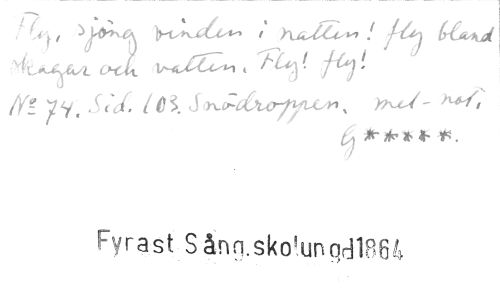 Fly, sjöng vinden i natten! fly bland
skagar och vatten. Fly! fly!
No 74. Sid. 103. Snödroppen. mel-not.
G*****.
Fyrast Sång.skolungd1864